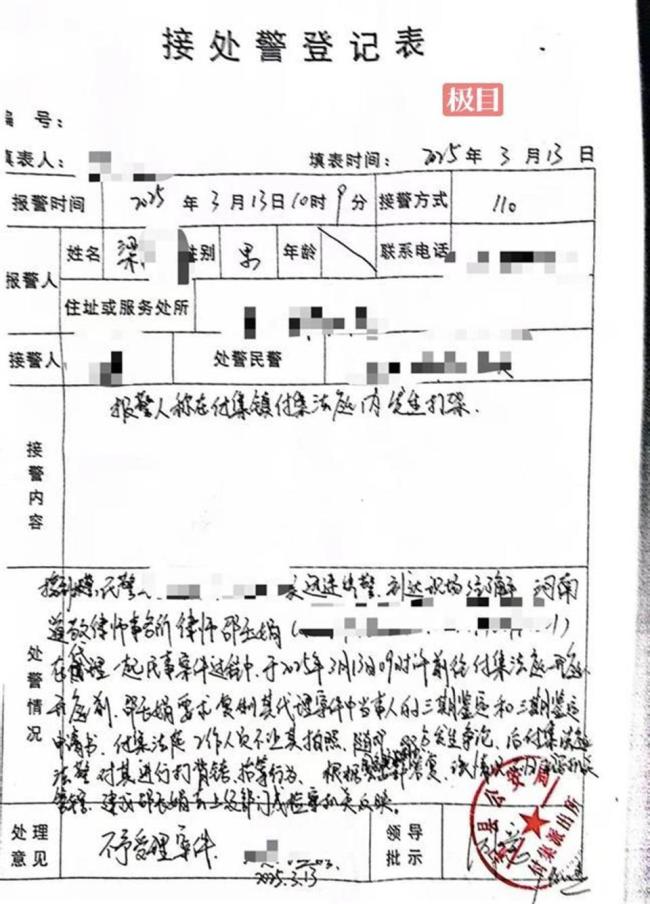 接处警登记表
极目
编 号:
填表人:
填表时间: 2025 年 3 月 13 日
报警时间 2025 年 3 月 13 日 10 时 9 分 接警方式 110
报警人 姓名 梁 性别 男 年龄 联系电话
住址或服务处所
接警人 处警民警
接警内容 报警人称在付集镇付集法庭内发生打架.
处警情况
接到报警,民警 迅速出警,到达现场经了解,河南
律师事务所律师邵长娟(
在代理一起民事案件过程中,于2025年3月13日09时许前往付集法庭开庭,
开庭前,邵长娟要求复制其代理案件中当事人的三期鉴定和三期鉴定
申请书,付集法庭工作人员不让其拍照,随即双方发生争论,后付集法庭
法警对其进行打背铐、掐等行为.根据 答复,该情况 公安机关
管辖,建议邵长娟去上级部门或检察机关反映.
处理意见 不予受理案件. 2025.3.13
领导批示
县公安局
付集派出所